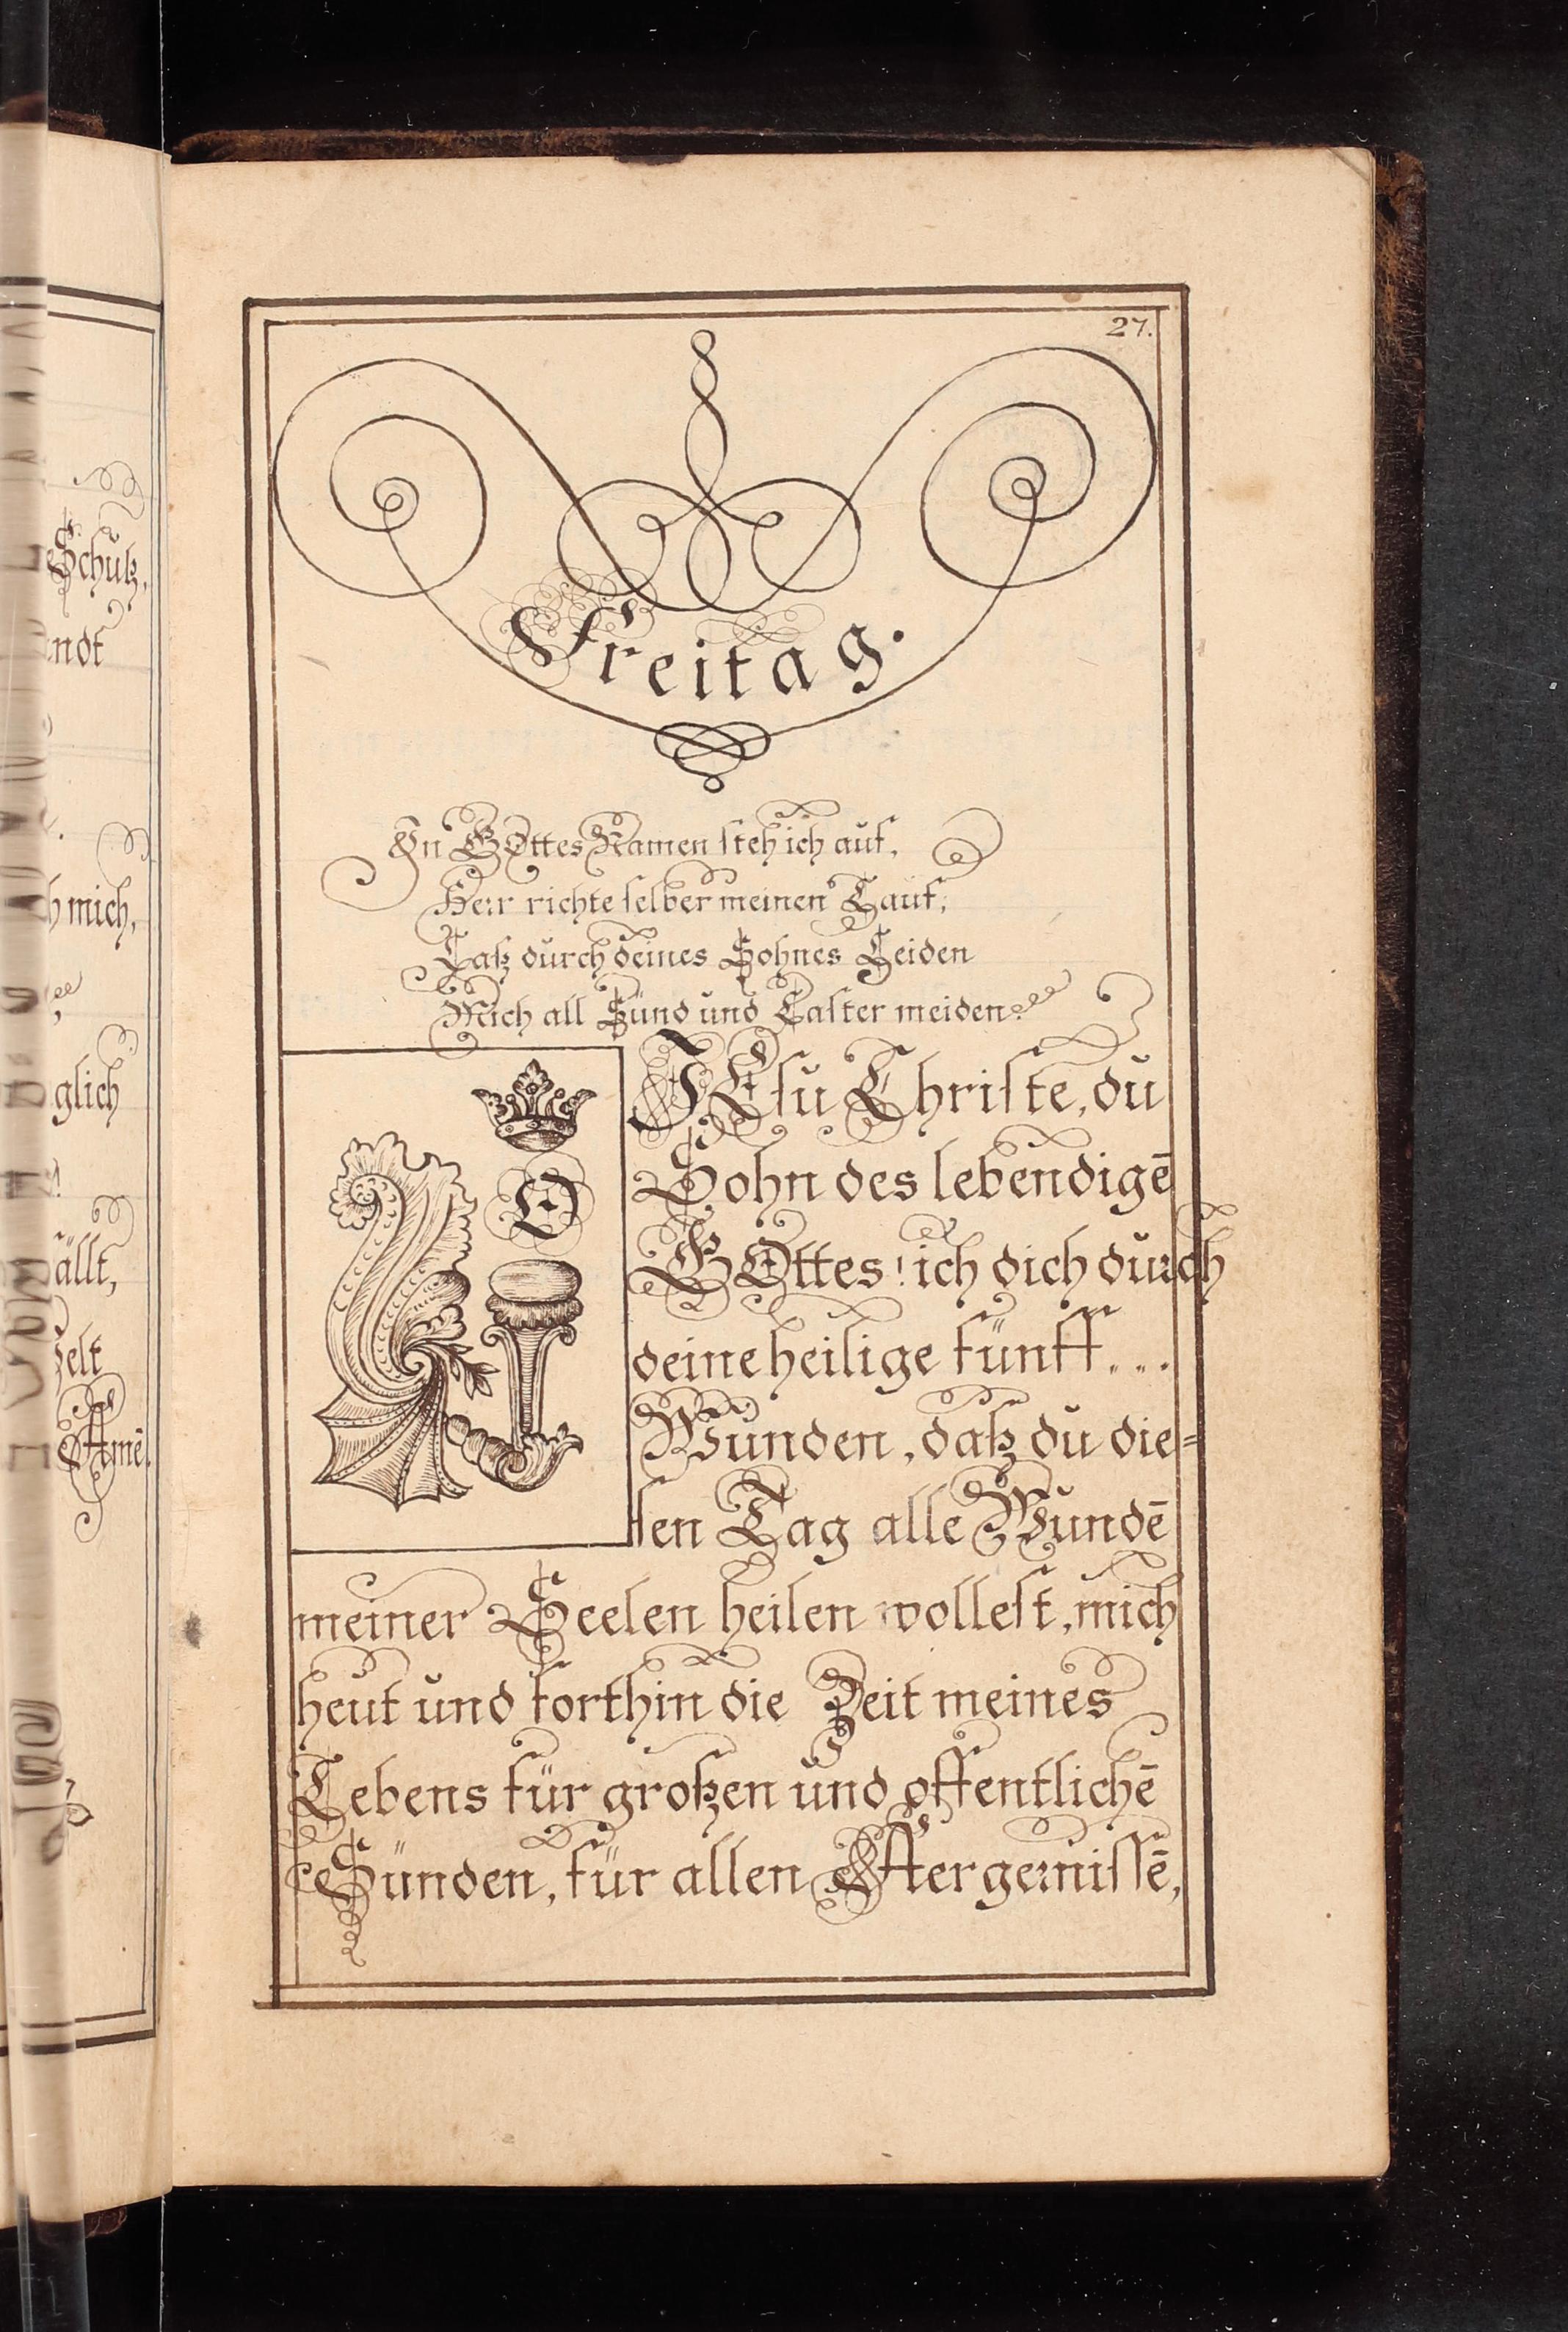 27.
Freitag.
In GOttes Namen steh ich auf,
Herr richte selber meinen Lauf,
Laß durch deines Sohnes Leiden
Mich all Sünd und Laster meiden.
O
JEsu Christe, du
Sohn des lebendigē
GOttes! ich dich durch
deine heilige fünff...
Wunden, daß du die=
sen Tag alle Wundē
meiner Seelen heilen wollest, mich
heut und forthin die Zeit meines
Lebens für großen und offentlichē
Sünden, für allen Aergernissē,
Schutz,
mich,
glich
ällt,
Amē.